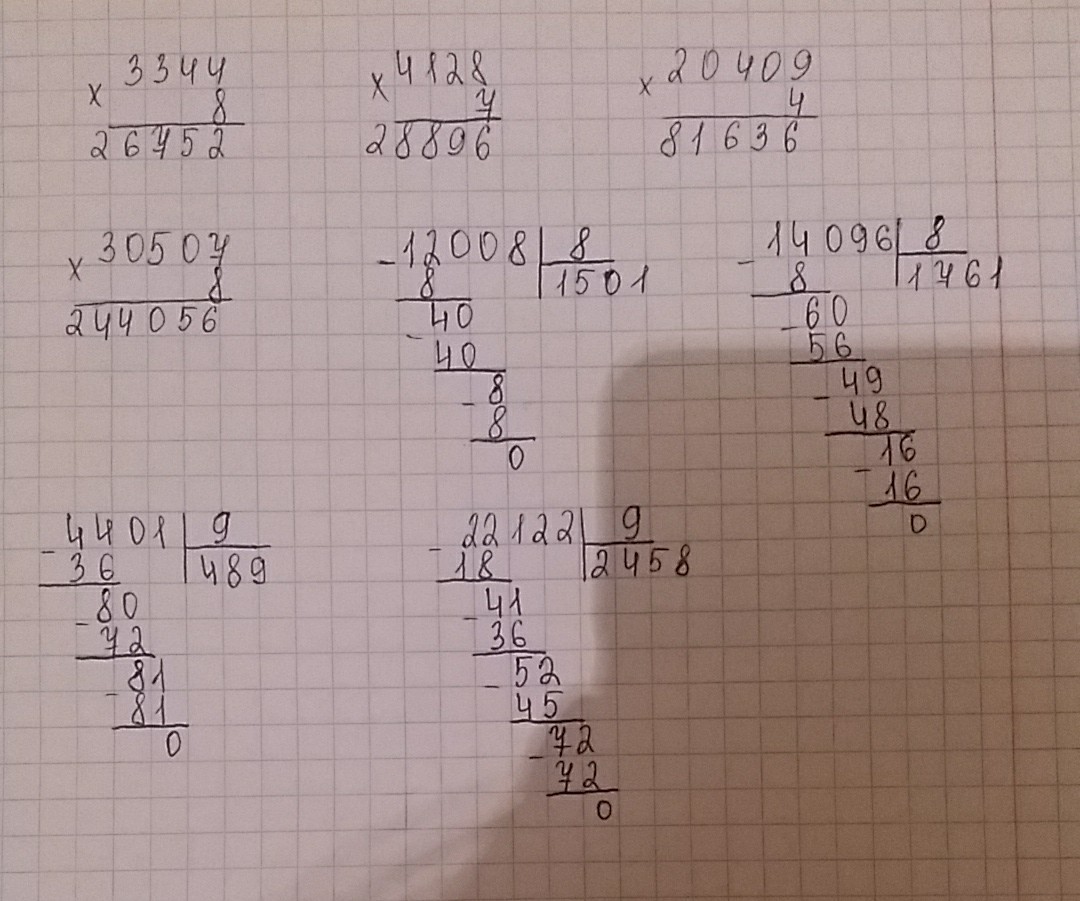 × 3344
8
26752
× 4128
7
28896
× 20409
4
81636
× 30507
8
244056
- 12008 | 8
8 | 1501
- 40
40
- 8
8
0
- 14096 | 8
8 | 1761
- 60
56
- 49
48
- 16
16
0
- 4401 | 9
36 | 489
- 80
72
- 81
81
0
- 22122 | 9
18 | 2458
- 41
36
- 52
45
- 72
72
0